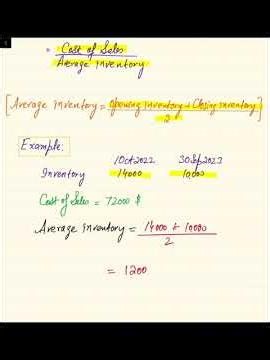 = Cost of Sales / Average inventory
[Average inventory = opening inventory + Closing inventory / 2]
Example:
1 Oct 2022 30 Sep 2023
Inventory 14000 10,000
Cost of Sales = 72000 $
Average inventory = 14000 + 10000 / 2
= 1200